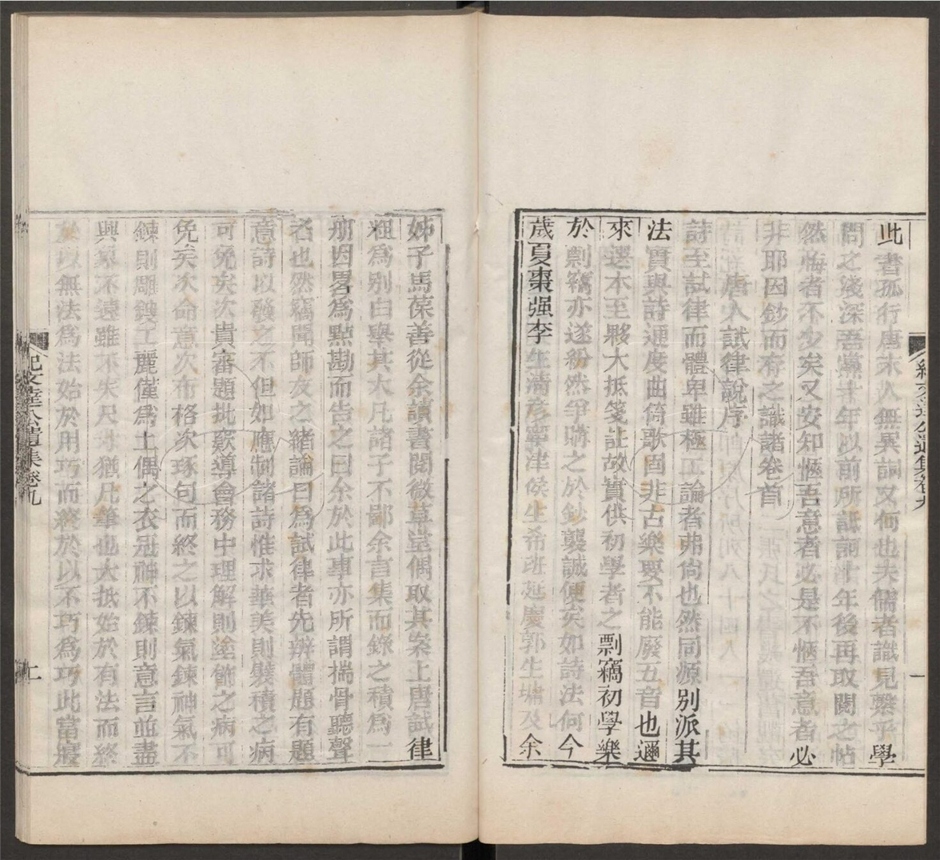 此書孤行唐宋人無異詞又何也夫儒者識見繫乎學
問之淺深吾黨十年以前所詆訶十年後再取閱之帖
然悔者不少矣又安知愜吾意者必是不愜吾意者必
非耶因鈔而存之識諸卷首
唐人試律說序
詩至試律而體卑雖極工論者弗尚也然同源別派其
法實與詩通度曲倚歌固非古樂要不能廢五音也邇
來選本至夥大抵箋註故實供初學者之剽竊初學樂
於剽竊亦遂紛然爭購之於鈔襲誠便矣如詩法何今
歲夏棗强李生清彥寧津侯生希班延慶郭生墉及余
紀文達公遺集卷九
姊子馬葆善從余讀書閱微草堂偶取其案上唐試律
粗爲別白舉其大凡諸子不鄙余言集而錄之積爲一
册因畧爲點勘而告之曰余於此事亦所謂揣骨聽聲
者也然竊聞師友之緒論曰爲試律者先辨體題有題
意詩以發之不但如應制諸詩惟求華美則襞積之病
可免矣次貴審題批窾導會務中理解則塗飾之病可
免矣次命意次布格次琢句而終之以鍊氣鍊神氣不
鍊則雕鏤工麗僅爲土偶之衣冠神不鍊則意言並盡
興象不遠雖不失尺寸猶凡筆也大抵始於有法而終
於以無法爲法始於用巧而終於以不巧爲巧此當寢
紀文達公遺集卷九